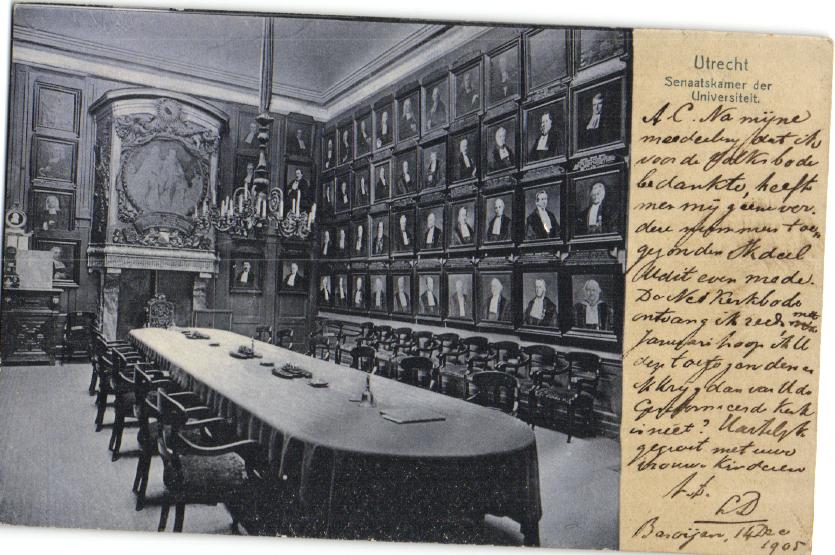 Utrecht
Senaatskamer der
Universiteit.
A.C. Na mijne
mededeeling dat ik
voor de Volksbode
bedankte, heeft
men mij geene ver.
dere nummers toege
gezonden. Ik deel
U dit even mede.
De Ned Kerkbode
ontvang ik reeds met
Januari hoop ik U
deze toe te zenden en
ik krijg dan van U de
Gereformeerde Kerk
is niet? Hartelijk
gegroet met uwe
vrouw kinderen
t.t.
LD
14 Dec
1905